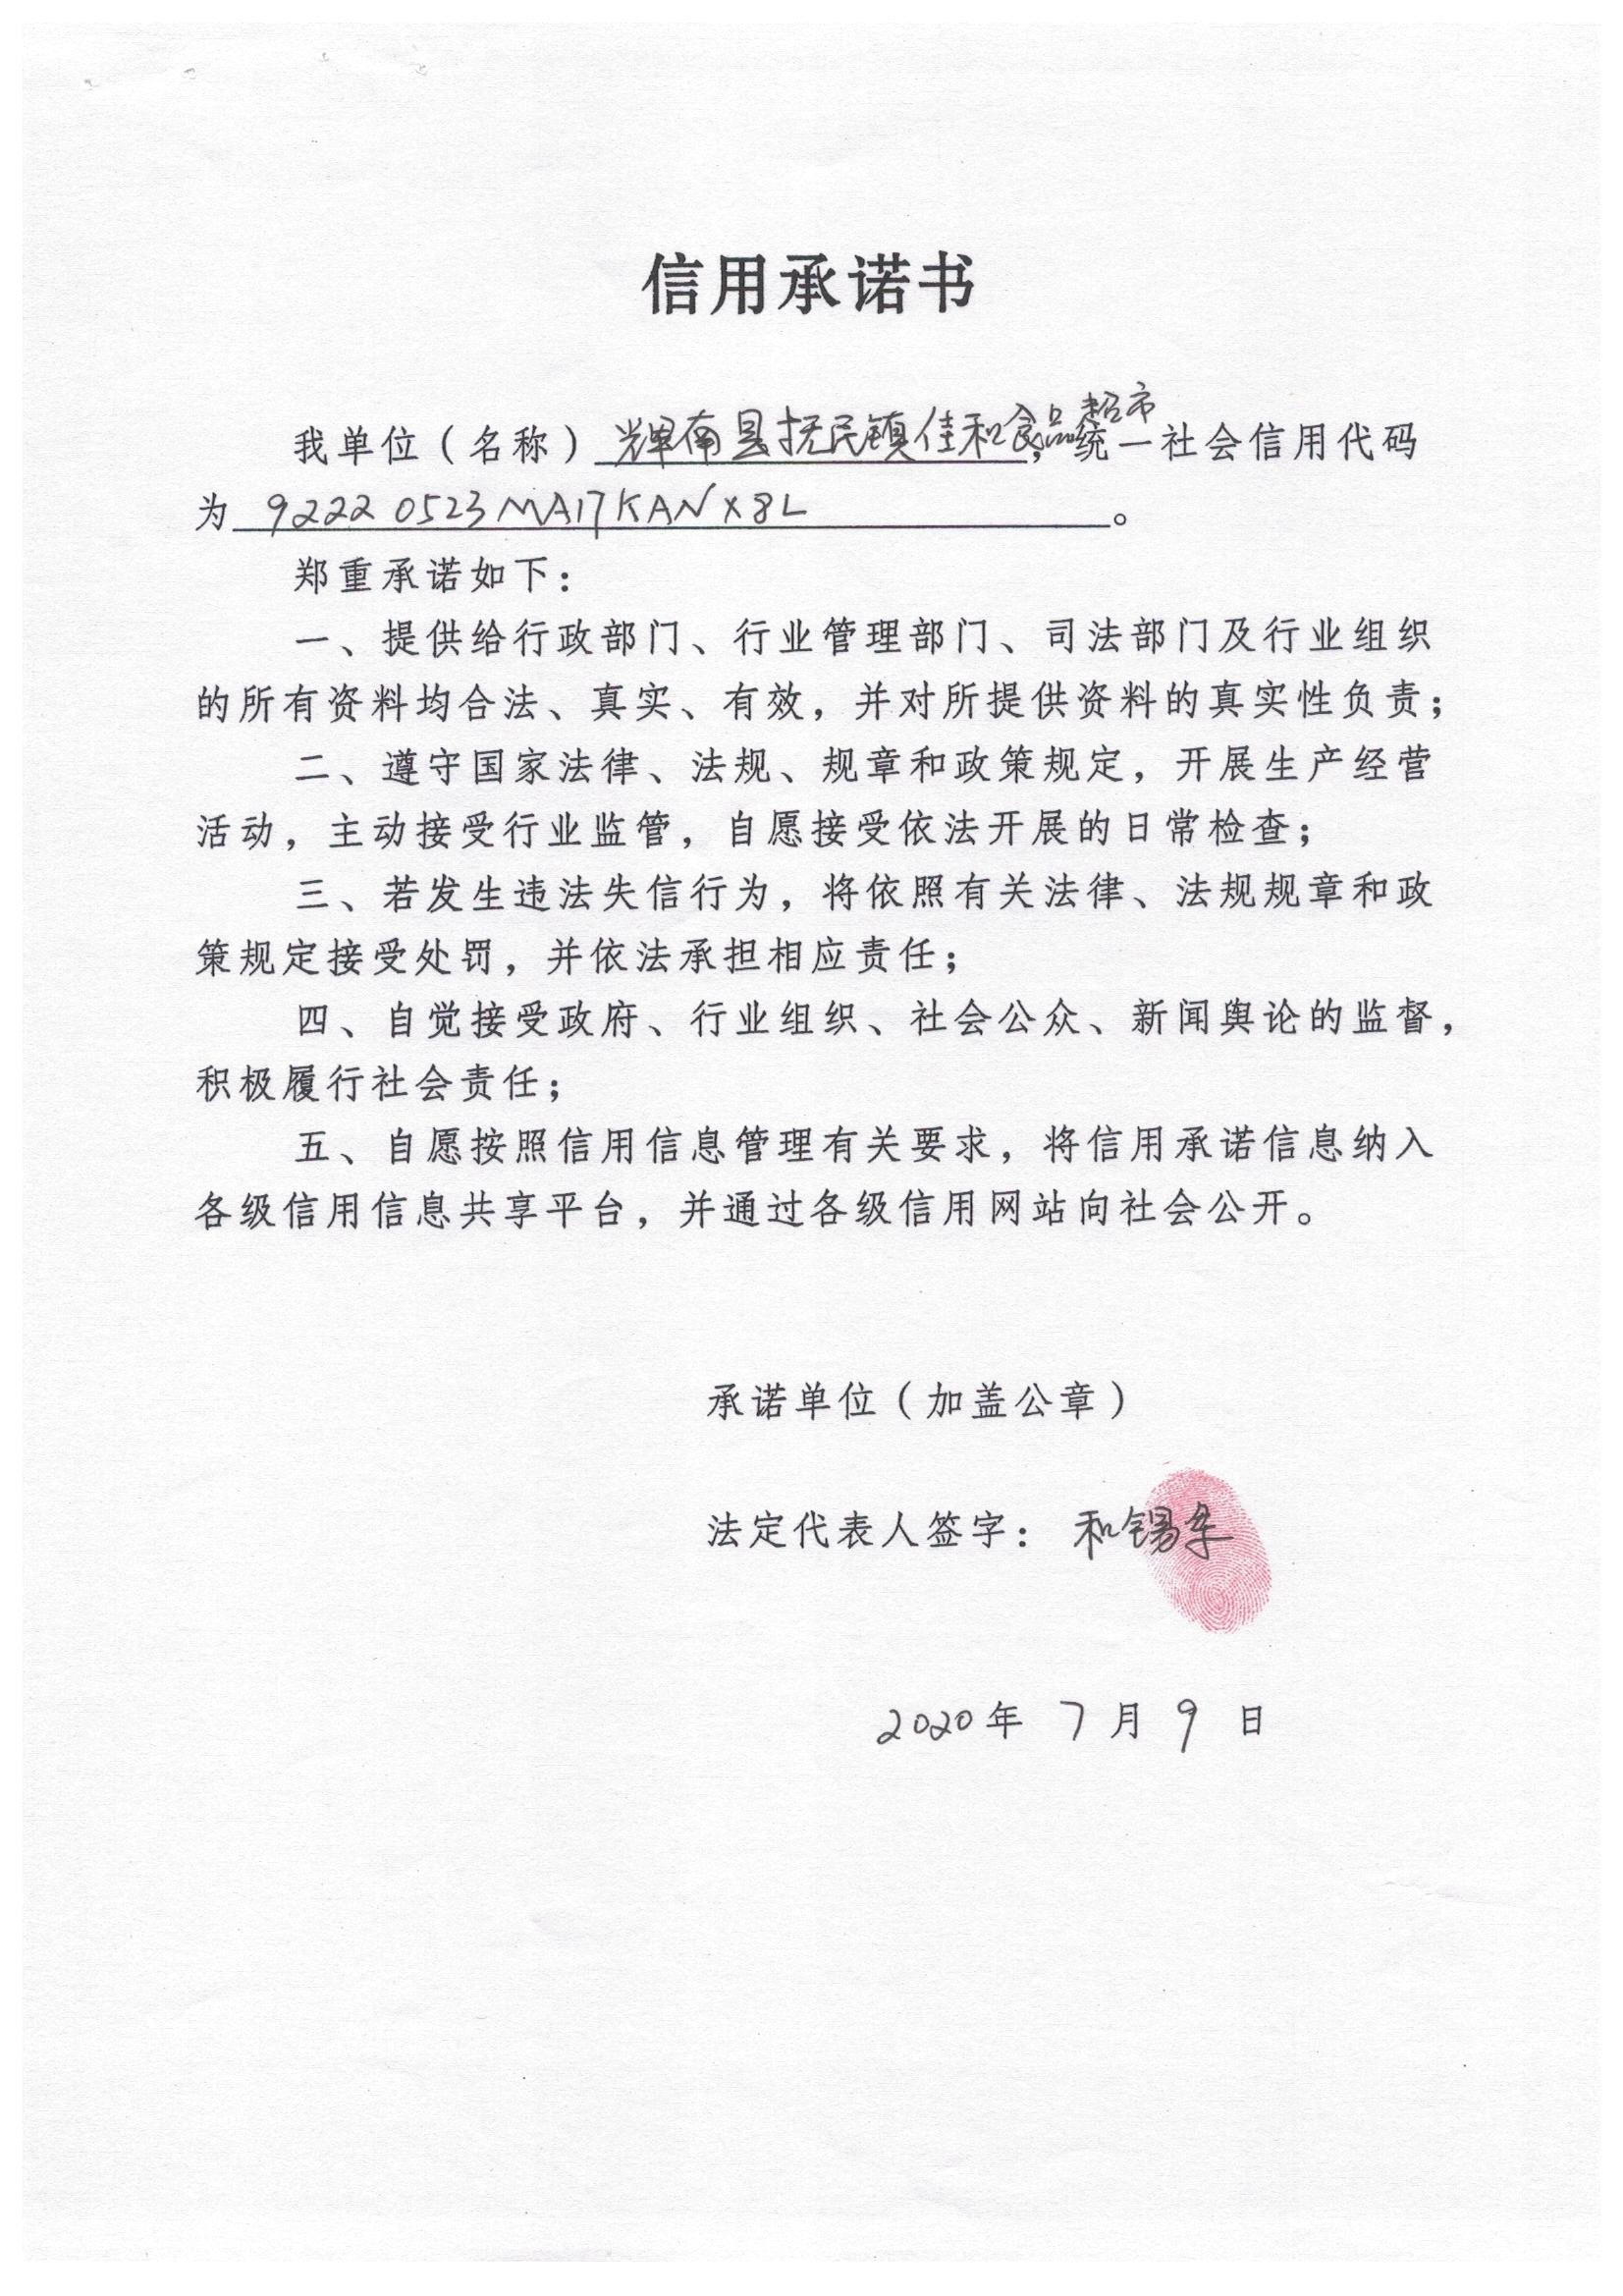 信用承诺书
我单位（名称）辉南县抚民镇佳和食品超市，统一社会信用代码
为 92220523MA17KANX8L 。
郑重承诺如下：
一、提供给行政部门、行业管理部门、司法部门及行业组织
的所有资料均合法、真实、有效，并对所提供资料的真实性负责；
二、遵守国家法律、法规、规章和政策规定，开展生产经营
活动，主动接受行业监管，自愿接受依法开展的日常检查；
三、若发生违法失信行为，将依照有关法律、法规规章和政
策规定接受处罚，并依法承担相应责任；
四、自觉接受政府、行业组织、社会公众、新闻舆论的监督，
积极履行社会责任；
五、自愿按照信用信息管理有关要求，将信用承诺信息纳入
各级信用信息共享平台，并通过各级信用网站向社会公开。
承诺单位（加盖公章）
法定代表人签字： 和锡
2020年 7月 9日